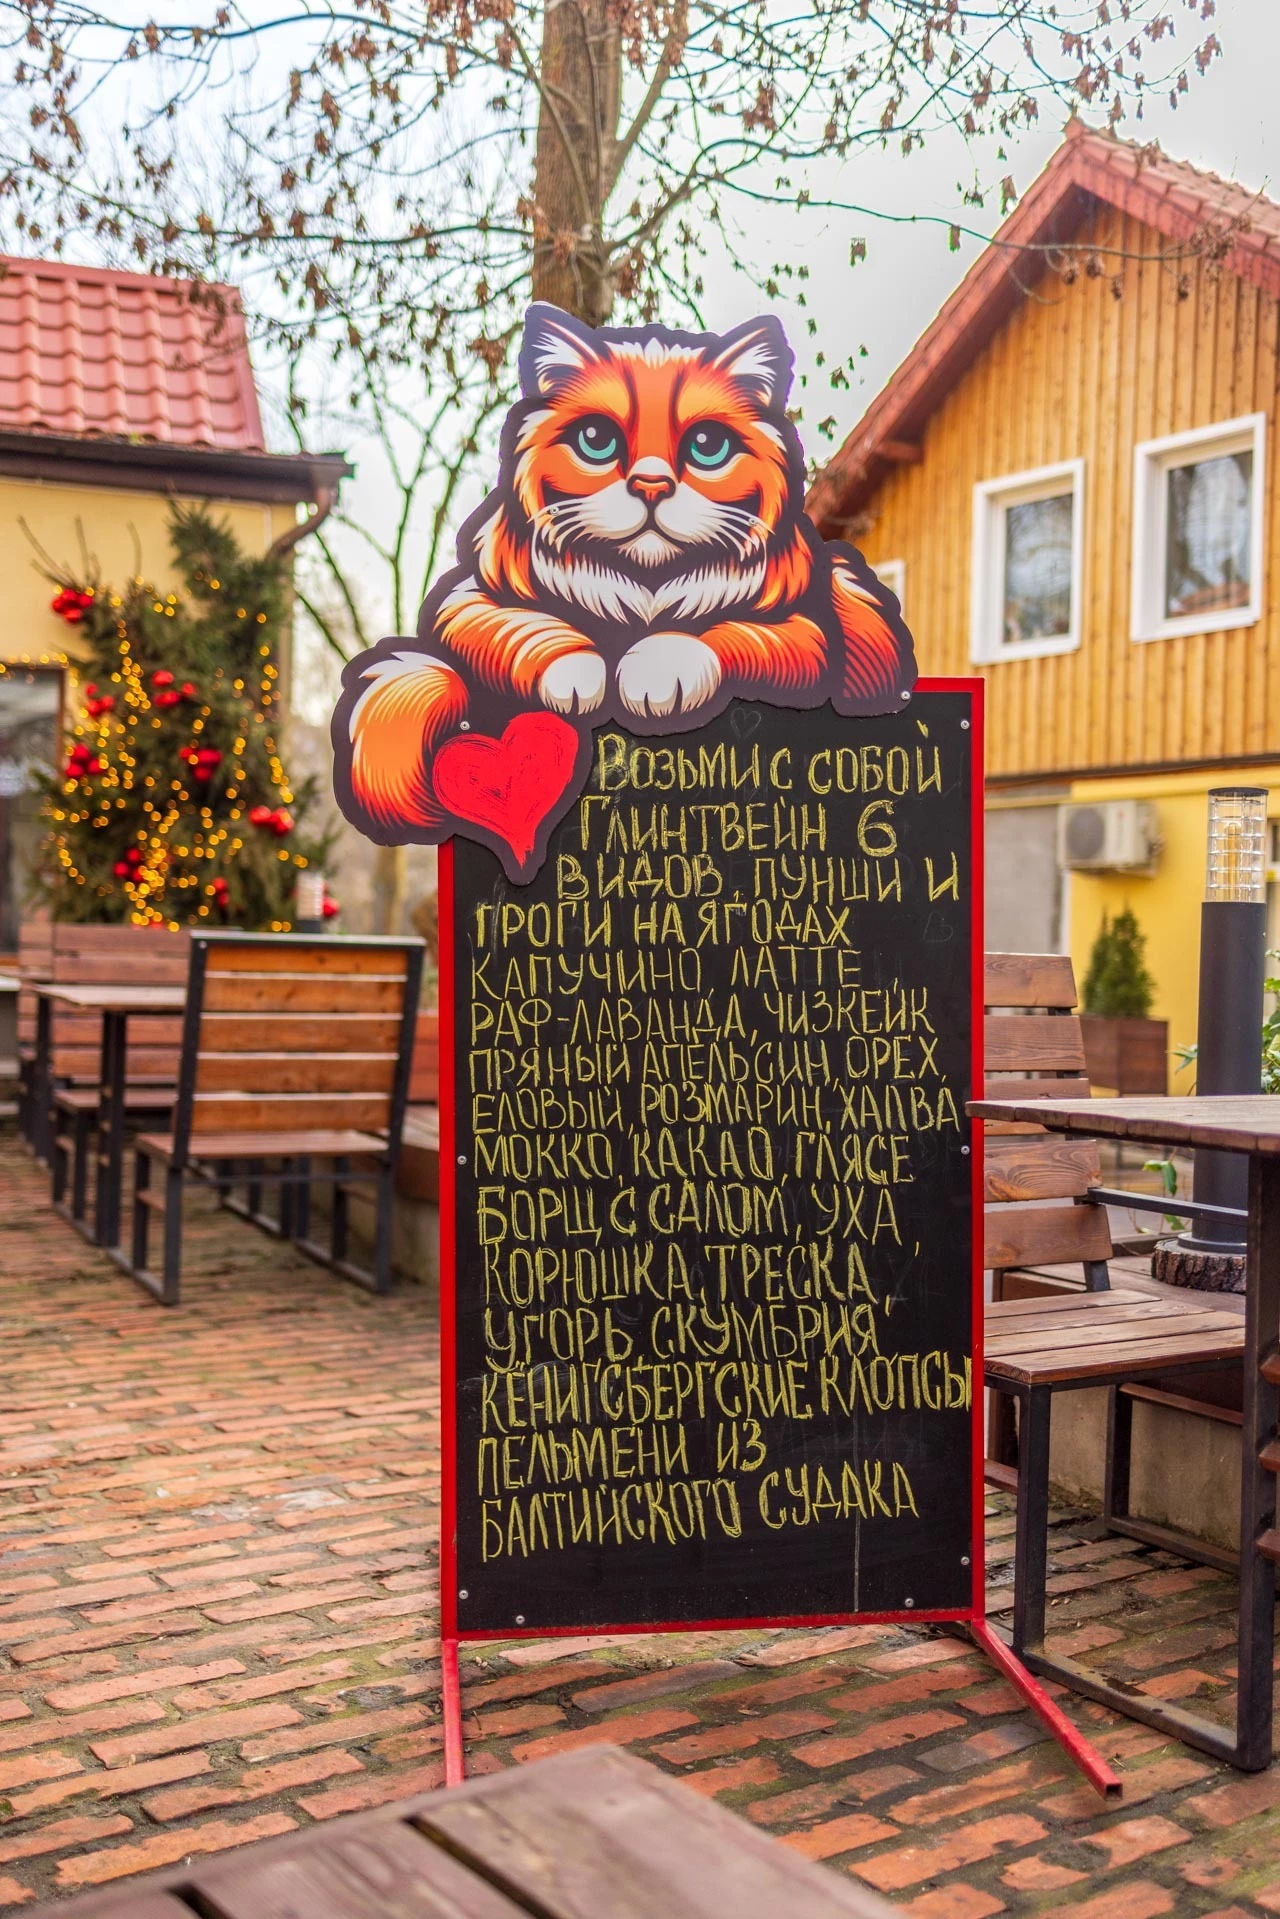 Возьми с собой
Глинтвейн 6
видов, пунши и
гроги на ягодах
капучино, латте,
раф-лаванда, чизкейк
пряный апельсин, орех,
еловый, розмарин, халва
мокко, какао, глясе
Борщ с салом, уха,
корюшка, треска,
угорь, скумбрия
кёнигсбергские клопсы
пельмени из
балтийского судака